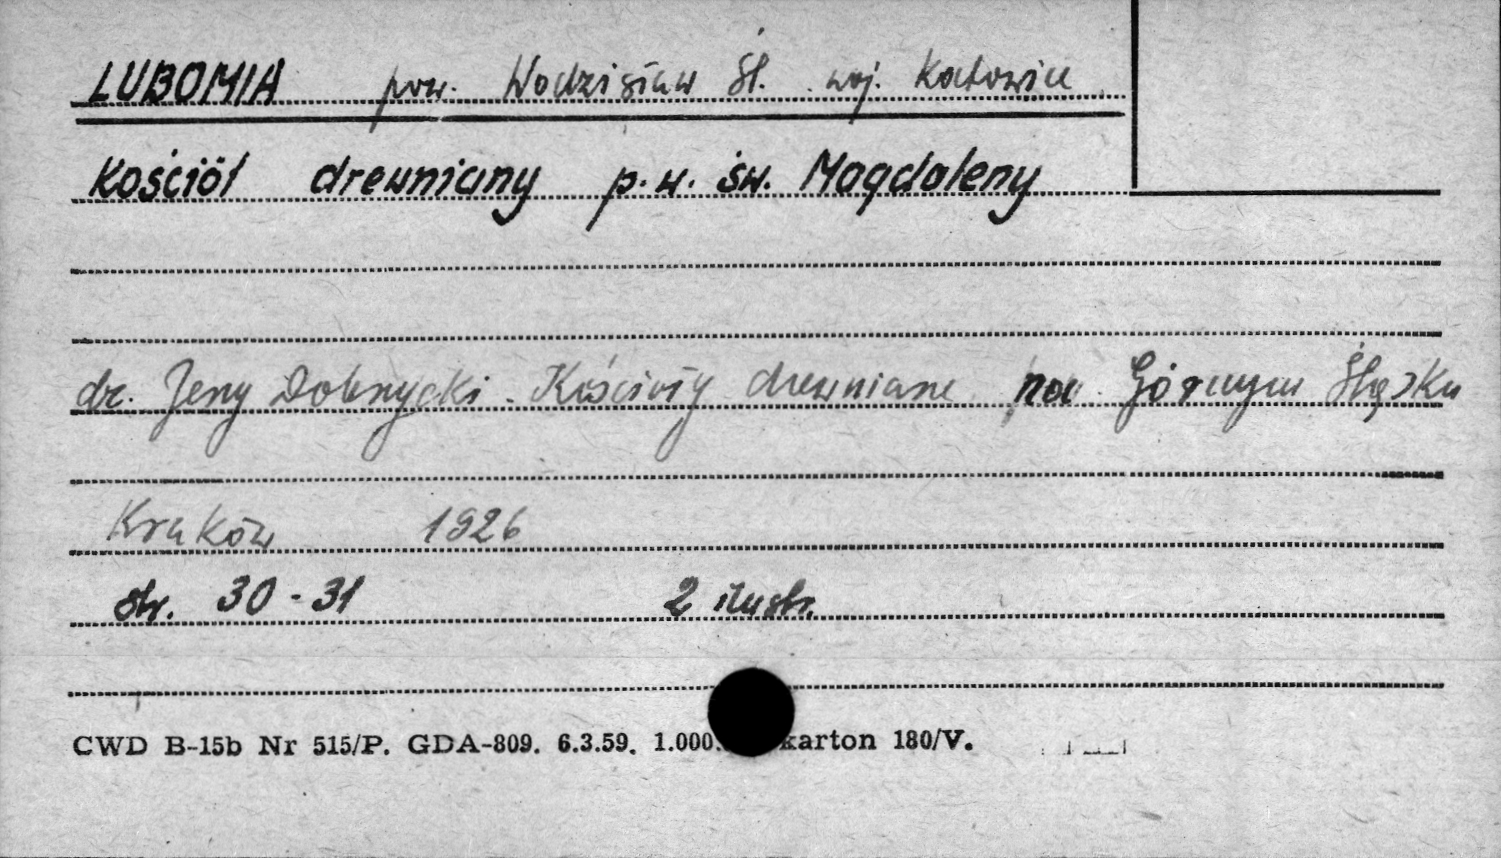 LUBOMIA pow. Wodzisław Śl. woj. Katowice
Kościół drewniany p.w. św. Magdaleny
dr. Jerzy Dobrzycki. Kościoły drewniane na Górnym Śląsku
Kraków 1926
str. 30-31 2 ilustr.
CWD B-15b Nr 515/P. GDA-809. 6.3.59. 1.000. karton 180/V.